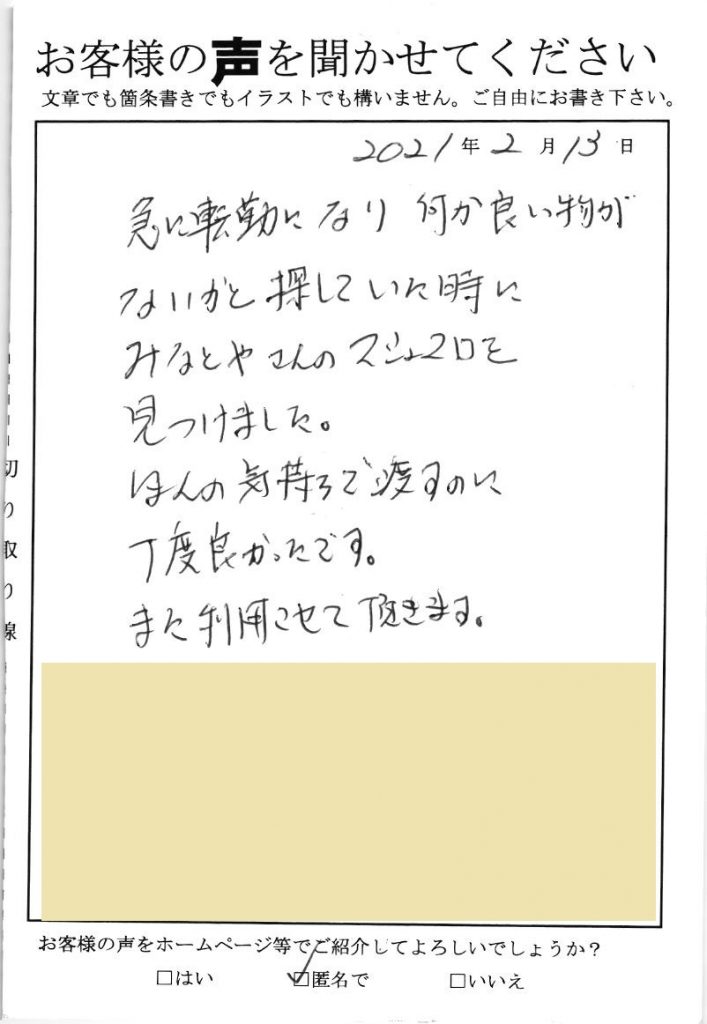 お客様の声を聞かせてください
文章でも箇条書きでもイラストでも構いません。ご自由にお書き下さい。
2021年2月13日
急に転勤になり 何か良い物が
ないかと探していた時に
みなとやさんのマシュマロを
見つけました。
ほんの気持ちで渡すのに
丁度良かったです。
また利用させて頂きます。
切り取り線
お客様の声をホームページ等でご紹介してよろしいでしょうか？
□はい ☑匿名で □いいえ